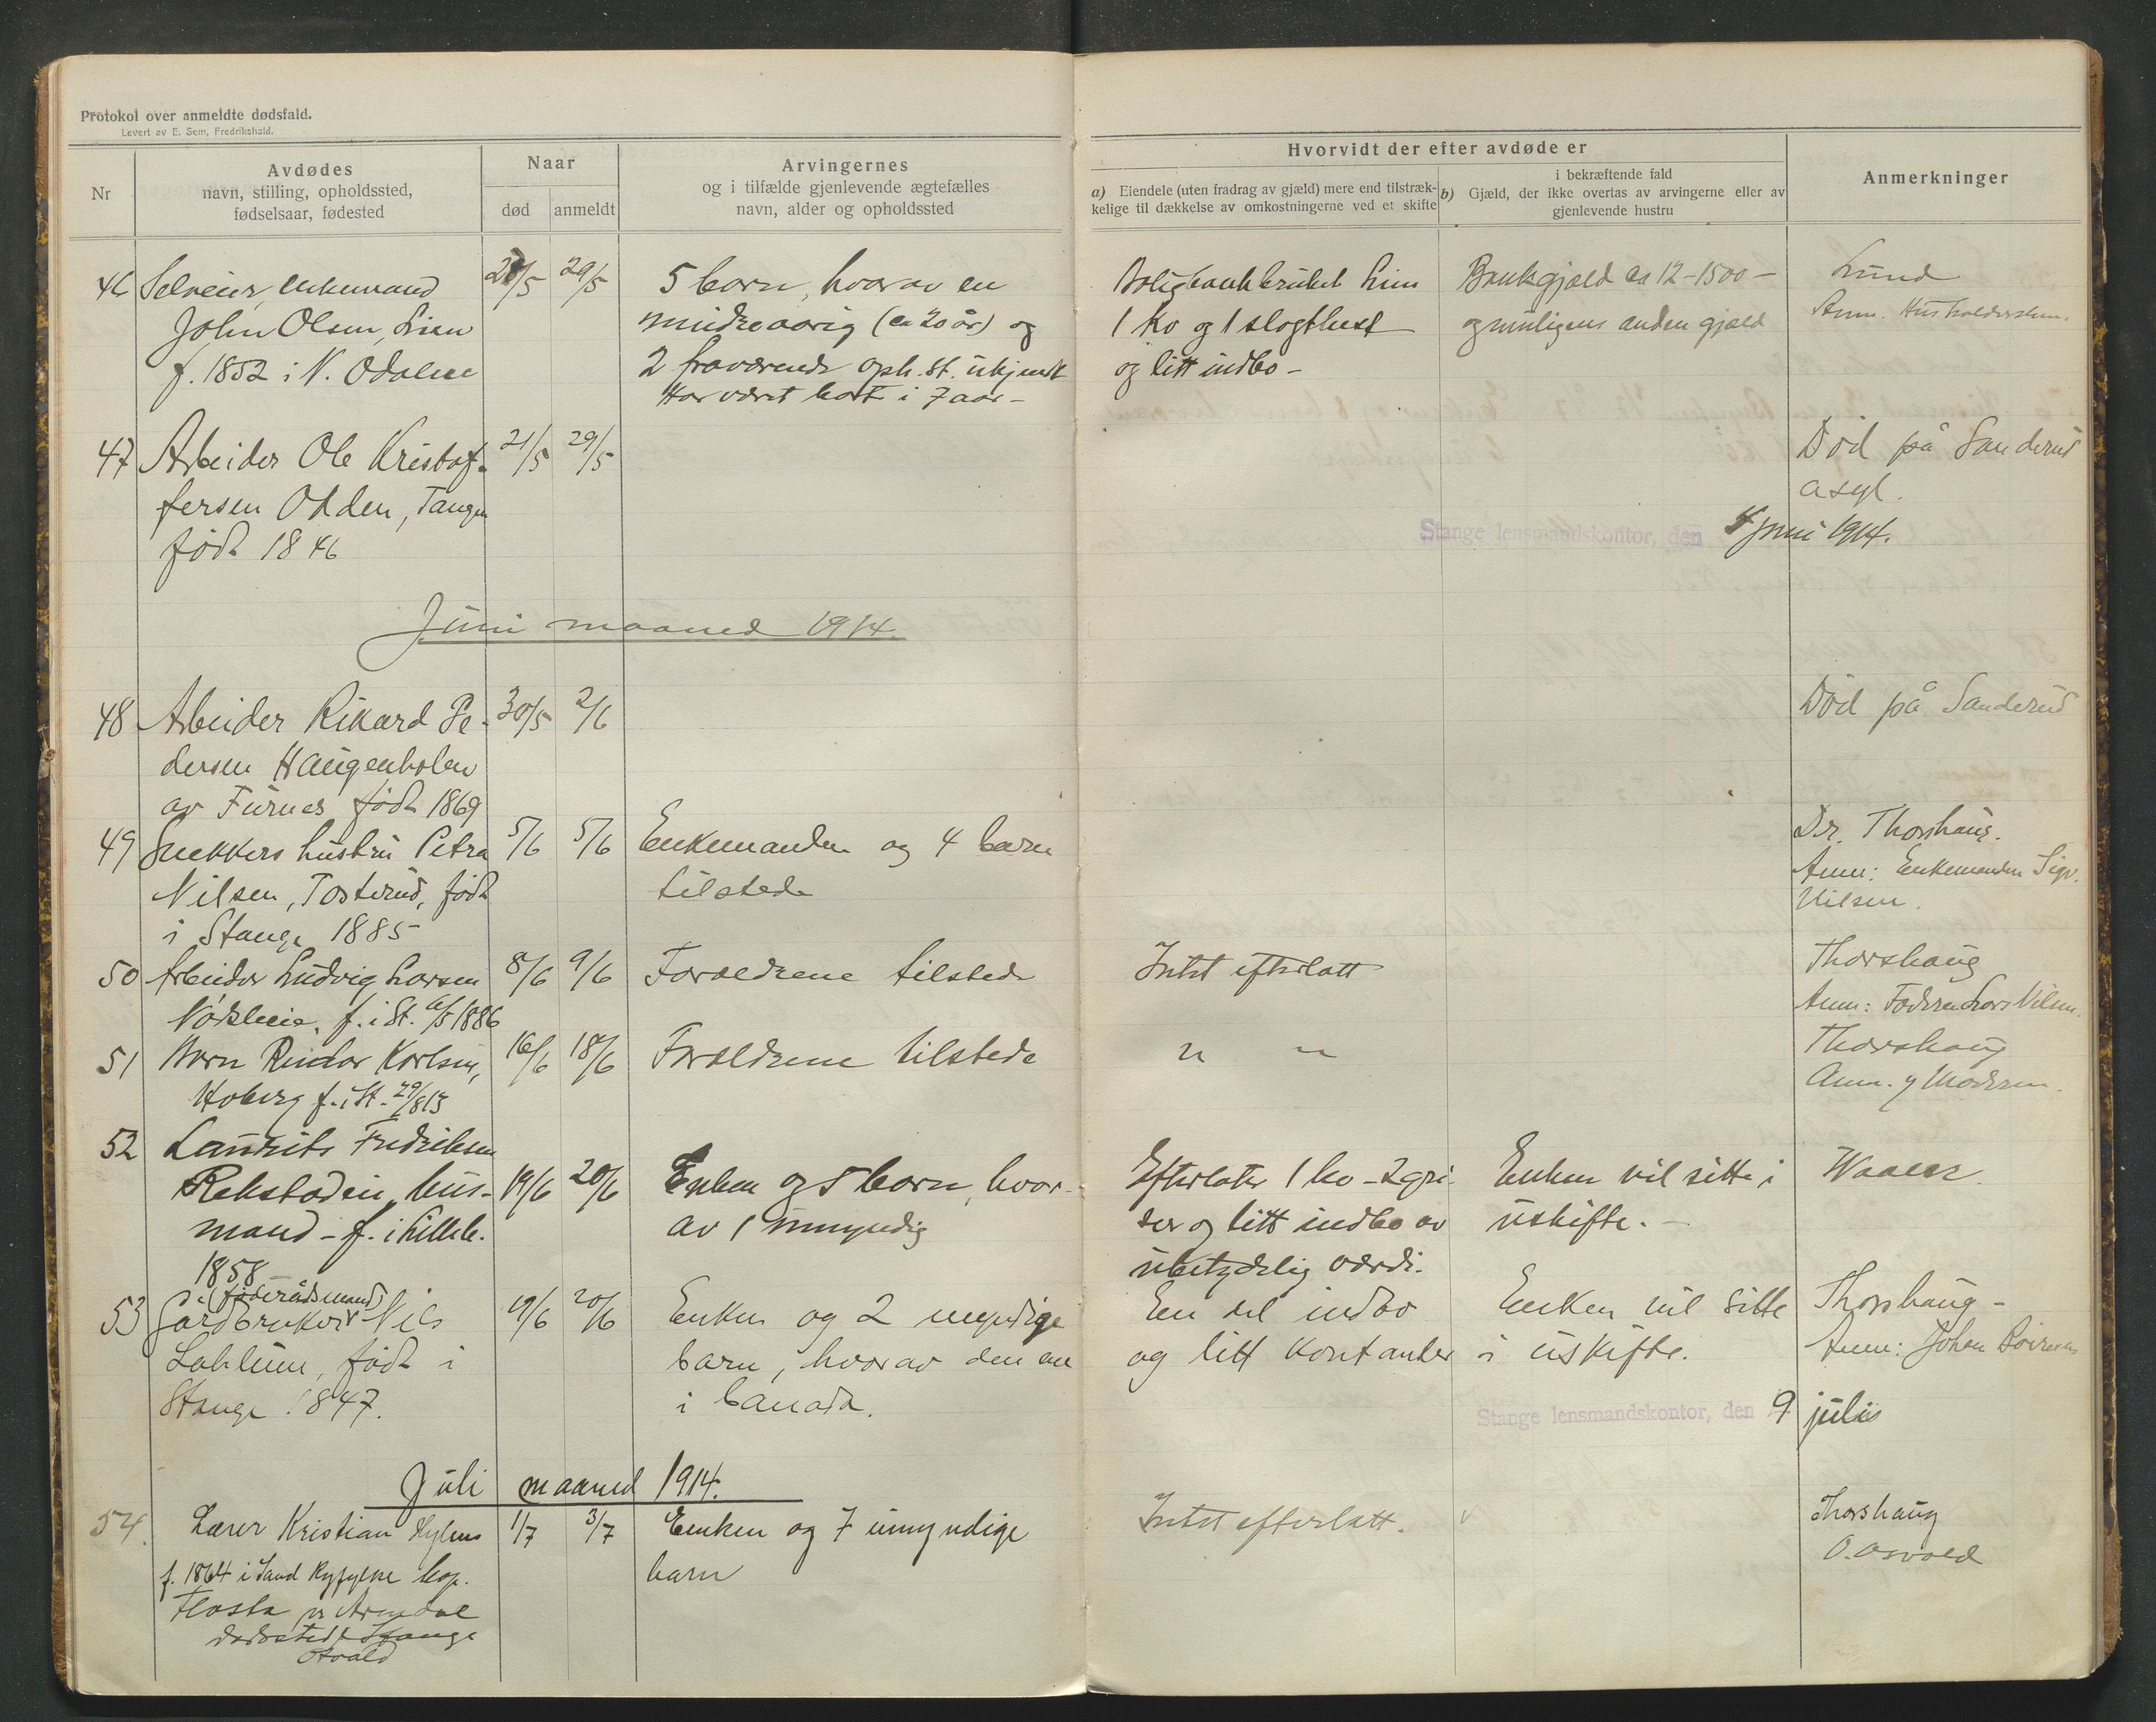 Protokol over anmeldte dødsfald.
Levert av E. Sem, Fredrikshald.
Nr
Avdødes
navn, stilling, opholdssted,
fødselsaar, fødested
Naar
død
anmeldt
Arvingernes
og i tilfælde gjenlevende ægtefælles
navn, alder og opholdssted
Hvorvidt der efter avdøde er
a) Eiendele (uten fradrag av gjæld) mere end tilstræk-
kelige til dækkelse av omkostningerne ved et skifte
i bekræftende fald
b) Gjæld, der ikke overtas av arvingerne eller av
gjenlevende hustru
Anmerkninger
46 Selveier, enkemand
John Olsen, Lien
f. 1852 i N. Odalen
29/5
5 barn, hvorav en
mindreaarig (ca 20 år) og
2 fraværende oph. st. ukjendt
Har været bort i 7 aar-
Lien
1 ko og 1 slagthest
og litt indbo-
Bankgjæld ca 12-1500-
og muligens anden gjæld
Lund
Anm.
47 Arbeider Ole Kristof-
fersen Odden, Tangen
født 1846
21/5 29/5
Død på Sanderud
asyl.
Stange lensmandskontor, den juni 1914.
Juni maaned 1914.
48 Arbeider Rikard Pe-
dersen Haugenholen
av Furnes født 1869
30/5 2/6
Død på Sanderud
49 Snekkers hustru Petra
Nilsen, Tosterud, født
i Stange 1885
5/6 5/6
Enkemanden og 4 barn
tilstede
Dr. Thorshaug.
Anm: Enkemanden Sigv.
Nilsen.
50 Arbeider Ludvig Larsen
f. i St. 6/5 1886
8/6 9/6
Forældrene tilstede
Intet efterlatt
Thorshaug
Anm: Faderen Lars Nilsen.
51 Barn Reidar Karlsen,
Hoberg f. i St. 29/8 13
16/6 18/6
Forældrene tilstede
" "
Thorshaug
Anm. Moderen.
52 Laurits Fredriksen
Rekstadeie, hus-
mand - f. i Lilleh.
1858
19/6 20/6
Enken og 5 barn, hvor-
av 1 umyndig
Efterlater 1 ko - 2 gri-
ser og litt indbo av
ubetydelig værdi.
Enken vil sitte i
uskifte.-
Waaler.
53 (føderådsmand)
Gårdbruker Nils
Lahlum, født i
Stange 1847.
19/6 20/6
Enken og 2 myndige
barn, hvorav den ene
i Canada.
En del indbo
og litt kontanter
Enken vil sitte
i uskifte.
Thorshaug-
Anm: Johan
Stange lensmandskontor, den 9 juli
Juli maaned 1914.
54. Lærer Kristian Hylens
f. 1864 i Sand Ryfylke bop.
Flosta pr Arendal
dødssted Stange
Osvald
1/7 3/7
Enken og 7 umyndige
barn
Intet efterlatt.
Thorshaug
O. Osvald